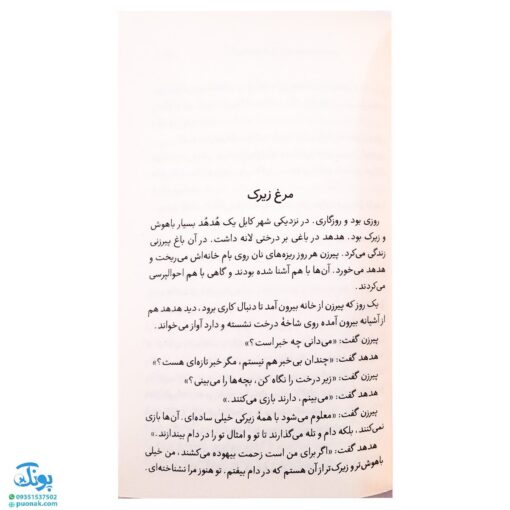 مرغ زیرک
روزی بود و روزگاری. در نزدیکی شهر کابل یک هُدهُد بسیار باهوش
و زیرک بود. هدهد در باغی بر درختی لانه داشت. در آن باغ پیرزنی
زندگی می‌کرد. پیرزن هر روز ریزه‌های نان روی بام خانه‌اش می‌ریخت و
هدهد می‌خورد. آن‌ها با هم آشنا شده بودند و گاهی با هم احوالپرسی
می‌کردند.
یک روز که پیرزن از خانه بیرون آمد تا دنبال کاری برود، دید هدهد هم
از آشیانه بیرون آمده روی شاخهٔ درخت نشسته و دارد آواز می‌خواند.
پیرزن گفت: «می‌دانی چه خبر است؟»
هدهد گفت: «چندان بی‌خبر هم نیستم، مگر خبر تازه‌ای هست؟»
پیرزن گفت: «زیر درخت را نگاه کن، بچه‌ها را می‌بینی؟»
هدهد گفت: «می‌بینم، دارند بازی می‌کنند.»
پیرزن گفت: «معلوم می‌شود با همهٔ زیرکی خیلی ساده‌ای. آن‌ها بازی
نمی‌کنند، بلکه دام و تله می‌گذارند تا تو و امثال تو را در دام بیندازند.»
هدهد گفت: «اگر برای من است زحمت بیهوده می‌کشند، من خیلی
باهوش‌تر و زیرک‌تر از آن هستم که در دام بیفتم. تو هنوز مرا نشناخته‌ای.
پونک
09351537502
puonak.com